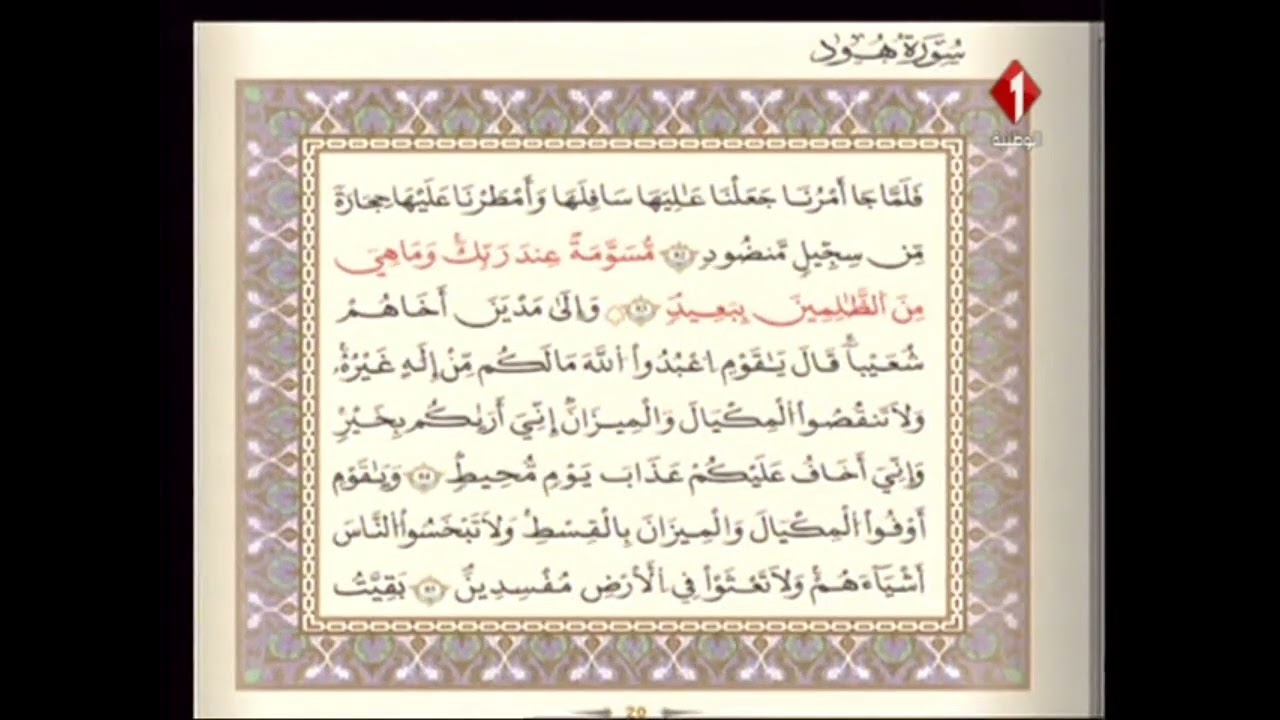 سُورَةُ هُودٍ
1
الوطنية
فَلَمَّا جَا أَمْرُنَا جَعَلْنَا عَٰلِيَهَا سَافِلَهَا وَأَمْطَرْنَا عَلَيْهَا حِجَارَةً
مِّن سِجِّيلٍ مَّنضُودٍ مُّسَوَّمَةً عِندَ رَبِّكَۖ وَمَا هِيَ
مِنَ اَ۬لظَّٰلِمِينَ بِبَعِيدٍۖ وَإِلَىٰ مَدْيَنَ أَخَاهُمْ
شُعَيْباًۖ قَالَ يَٰقَوْمِ اِ۟عْبُدُواْ اُ۬للَّهَ مَا لَكُم مِّنْ إِلَٰهٍ غَيْرُهُۥۖ
وَلَا تَنقُصُواْ اُ۬لْمِكْيَالَ وَالْمِيزَانَۖ إِنِّيَ أَر۪ىٰكُم بِخَيْرٖ
وَإِنِّيَ أَخَافُ عَلَيْكُمْ عَذَابَ يَوْمٖ مُّحِيطٖۖ وَيَٰقَوْمِ
أَوْفُواْ اُ۬لْمِكْيَالَ وَالْمِيزَانَ بِالْقِسْطِۖ وَلَا تَبْخَسُواْ اُ۬لنَّاسَ
أَشْيَآءَهُمْۖ وَلَا تَعْثَوْاْ فِي اِ۬لْأَرْضِ مُفْسِدِينَۖ بَقِيَّتُ
20